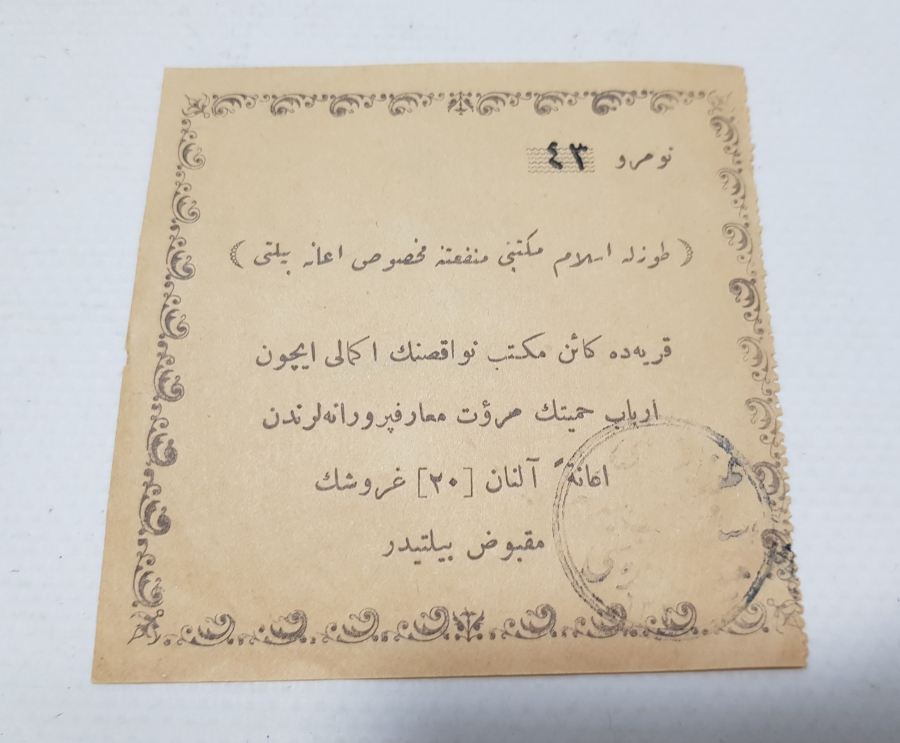 نومرو ٤٣
( طوزله اسلام مکتبنی منفعتنه مخصوص اعانه بیلتی )
قریه‌ده کائن مکتب نواقصنك اکمالی ایچون
ارباب حمیتك مرؤت معارفپرورانه‌لرندن
اعانةً آلنان [٢٠] غروشك
مقبوض بیلتیدر